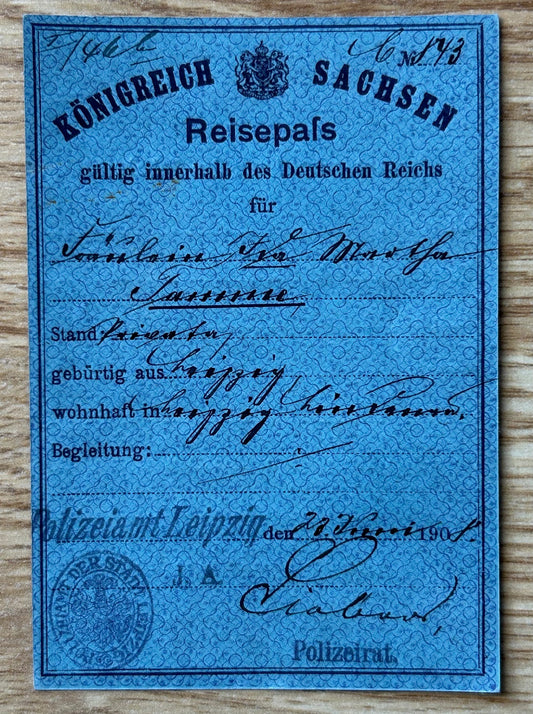 7/466 C № 173
KÖNIGREICH SACHSEN
Reisepaſs
gültig innerhalb des Deutschen Reichs
für
Fräulein Ida Martha
Tamme
Stand Privata,
gebürtig aus Leipzig
wohnhaft in Leipzig Lindenau,
Begleitung:
Polizeiamt Leipzig den 20 Juni 190
I. A.
POLIZEIAMT DER STADT LEIPZIG
Polizeirat.